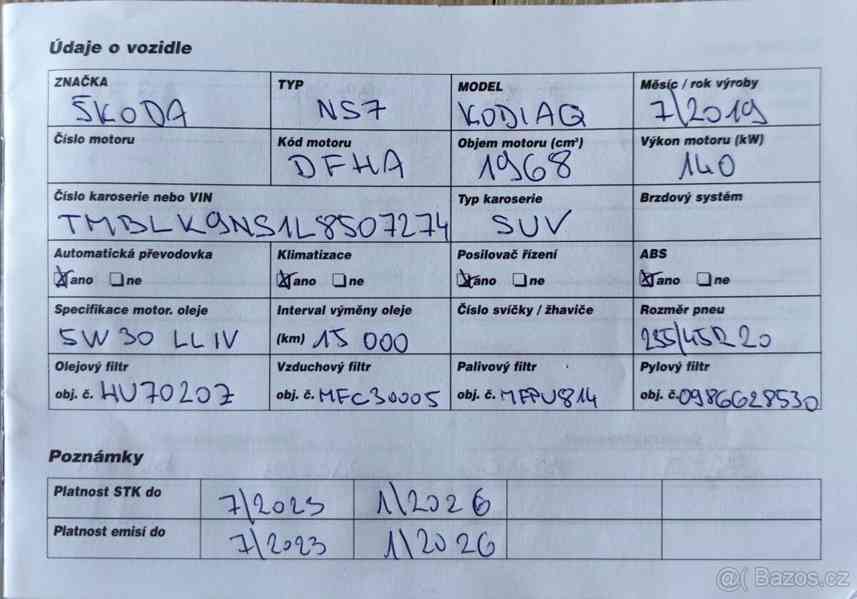 Údaje o vozidle
ZNAČKA TYP MODEL Měsíc / rok výroby
ŠKODA NS7 KODIAQ 7/2019
Číslo motoru Kód motoru Objem motoru (cm³) Výkon motoru (kW)
DFHA 1968 140
Číslo karoserie nebo VIN Typ karoserie Brzdový systém
TMBLK9NS1L8507274 SUV
Automatická převodovka Klimatizace Posilovač řízení ABS
ano ne ano ne ano ne ano ne
Specifikace motor. oleje Interval výměny oleje Číslo svíčky / žhaviče Rozměr pneu
5W30 LL IV (km) 15 000 255/45R20
Olejový filtr Vzduchový filtr Palivový filtr Pylový filtr
obj. č. HU7020Z obj. č. MFC30005 obj. č. MFPU814 obj. č. 0986628530
Poznámky
Platnost STK do 7/2023 1/2026
Platnost emisí do 7/2023 1/2026
@( Bazos.cz